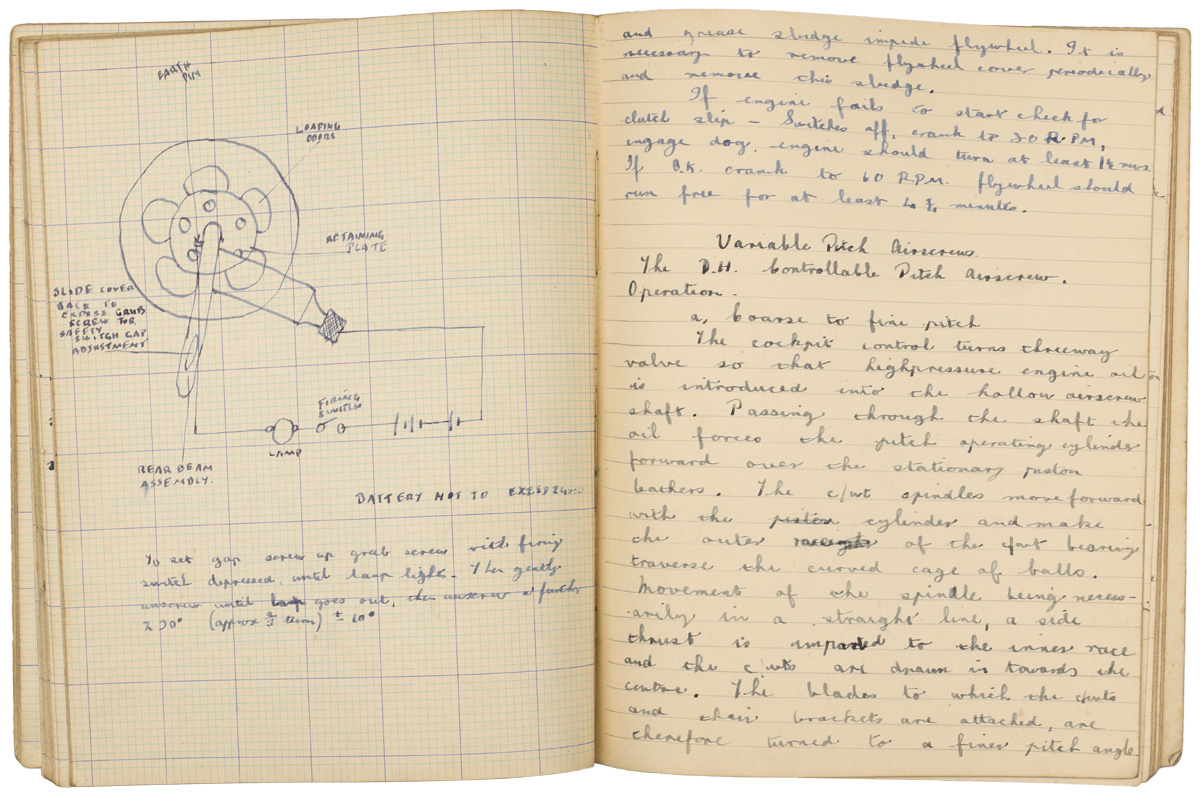 EARTH
PIN
LOADING
DOORS
RETAINING
PLATE
SLIDE COVER
BACK TO
EXPOSE GRUB
SCREW FOR
SAFETY
SWITCH GAP
ADJUSTMENT
FIRING
SWITCH
LAMP
REAR BEAM
ASSEMBLY.
BATTERY NOT TO EXEED 24
To set gap screw up grub screw with firing
switch depressed until lamp lights. Then gently
unscrew until lamp goes out, then unscrew a further
(approx turn) ± 10°
and grease sludge impede flywheel. It is
necessary to remove flywheel cover periodically
and remove this sludge.
If engine fails to start check for
clutch slip – Switches off, crank to 30 R.P.M,
engage dog, engine should turn at least 1½ revs
If O.K. crank to 60 R.P.M. flywheel should
run free for at least minutes.
Variable Pitch Airscrews.
The D.H. Controllable Pitch Airscrew.
Operation.
a, Coarse to fine pitch
The cockpit control turns threeway
valve so that highpressure engine oil
is introduced into the hollow airscrew
shaft. Passing through the shaft the
oil forces the pitch operating cylinder
forward over the stationary piston
leathers. The c/wt spindles move forward
with the piston cylinder and make
the outer of the c/wt bearing
traverse the curved cage of balls.
Movement of the spindle being necess-
arily in a straight line, a side
thrust is imparted to the inner race
and the c/wts are drawn in towards the
centre. The blades to which the c/wts
and their brackets are attached, are
therefore turned to a finer pitch angle